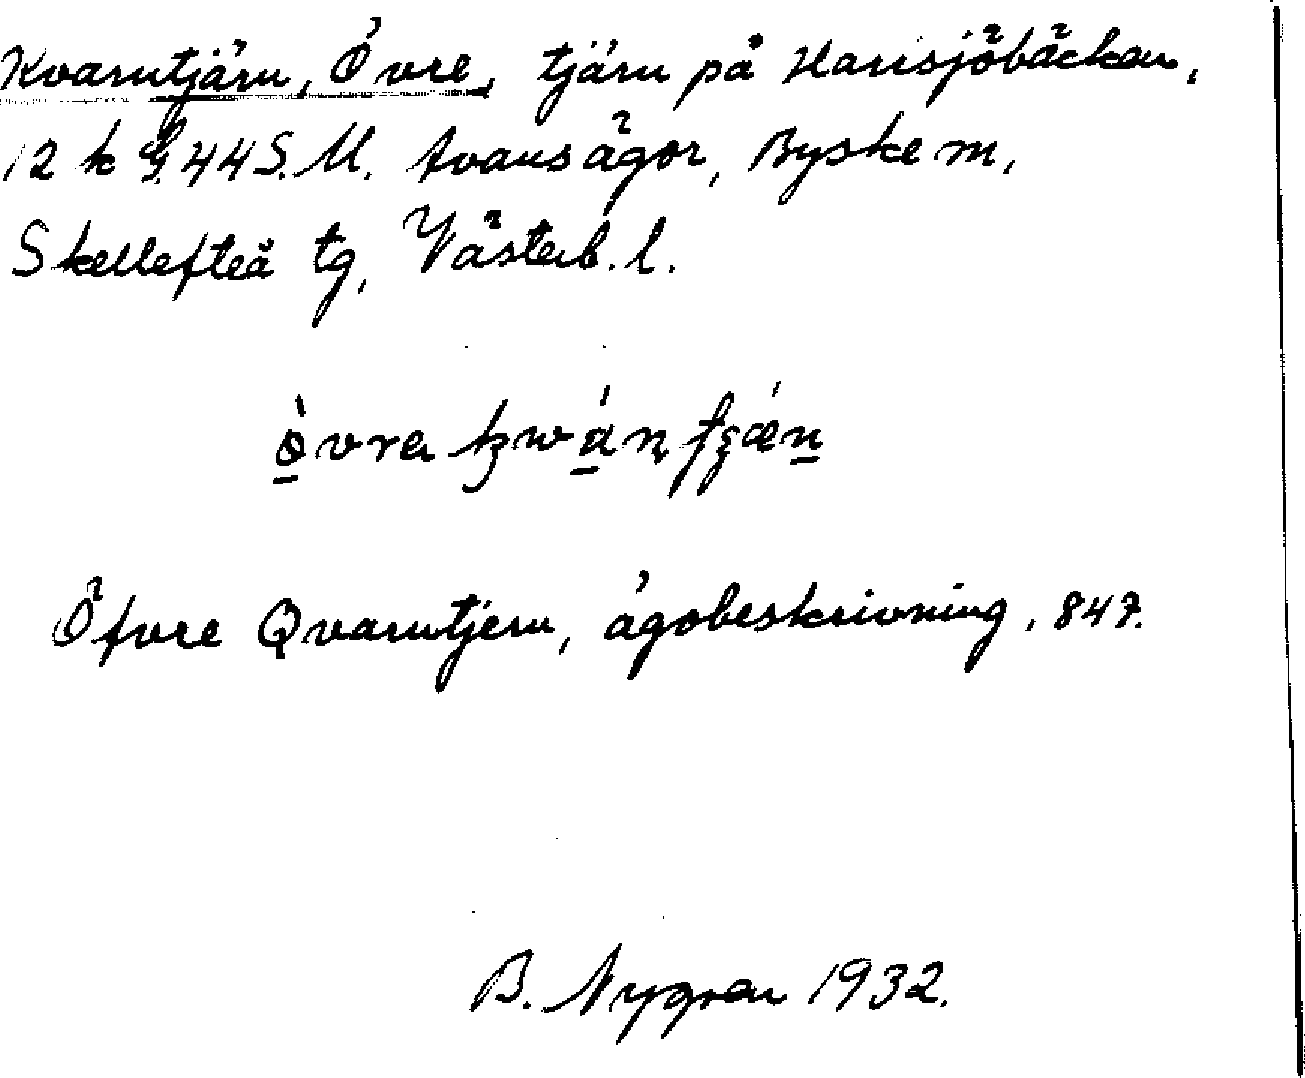 Kvarntjärn, Övre, tjärn på Harisjöbäcken,
12 k G.44 S.M. Avans ägor, Byske m,
Skellefteå tg, Västerb. l.
Öfvre Qvarntjern, ägobeskrivning, 847.
B. Nygren 1932.